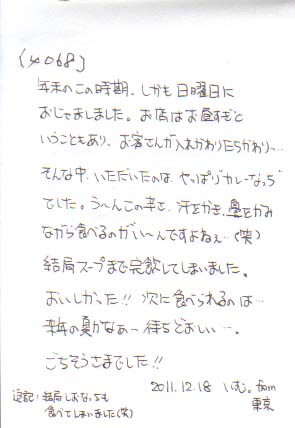 (4068)
年末のこの時期、しかも日曜日に
おじゃましました。お店はお昼すぎと
いうこともあり、お客さんが入れかわりたちかわり〜…
そんな中、いただいたのは、やっぱり"カレーなっち"
でした。う〜んこの辛さ、汗をかき、鼻をかみ
ながら食べるのがい〜んですよねぇ…(笑)
結局スープまで完飲してしまいました。
おいしかった!! 次に食べられるのは…
来年の夏かなぁ〜 待ちどおしい…。
ごちそうさまでした!!
2011.12.18 いむ。from
東京
追記:結局しおなっちも
食べてしまいました(笑)